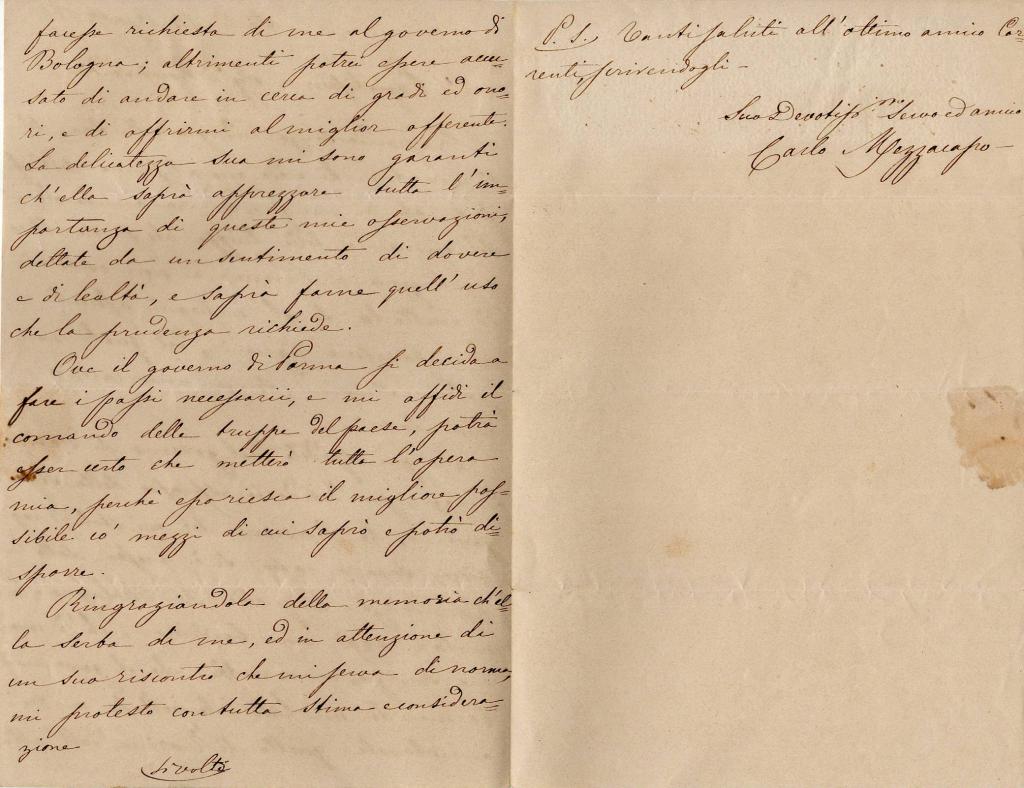 facesse richiesta di me al governo di
Bologna; altrimenti potrei essere accu=
sato di andare in cerca di gradi ed ono=
ri, e di offrirmi al miglior offerente.
La delicatezza sua mi sono garanti
ch'ella saprà apprezzare tutta l'im=
portanza di queste mie osservazioni,
dettate da un sentimento di dovere
e di lealtà, e saprà farne quell'uso
che la prudenza richiede.
Ove il governo di Parma si decida a
fare i passi necessarii, e mi affidi il
comando delle truppe del paese, potrà
esser certo che metterò tutta l'opera
mia, perchè esso riesca il migliore pos=
sibile co' mezzi di cui saprò e potrò di=
sporre.
Ringraziandola della memoria ch'el=
la serba di me, ed in attenzione di
un suo riscontro che mi serva di norma,
mi protesto con tutta stima e considera=
zione
si volti
P. S. Tanti saluti all'ottimo amico Cor=
renti, scrivendogli –
Suo Devotiss.mo Servo ed amico
Carlo Mezzacapo –